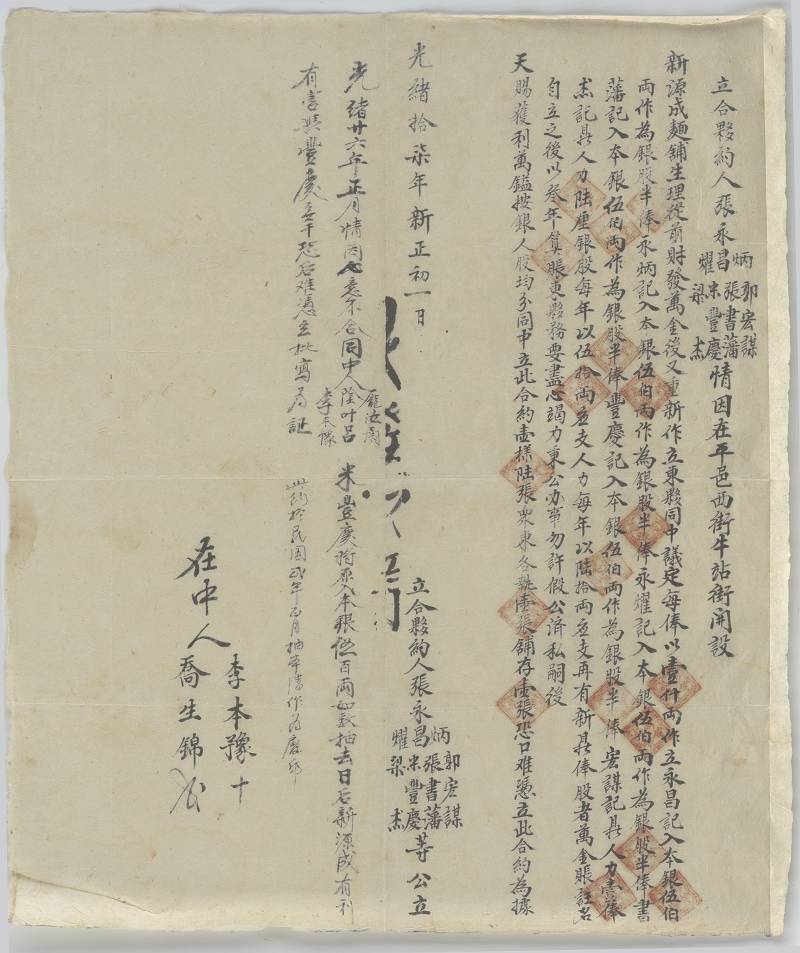 立合夥約人張永昌炳耀 郭宏謀 張書藩 米豐慶 梁杰 情因在平邑西街牛站街開設
新源成麵舖生理從前財發萬金後又重新作立東夥同中議定每俸以壹仟兩作立永昌記入本銀伍伯
兩作為銀股半俸永炳記入本銀伍伯兩作為銀股半俸永耀記入本銀伍伯兩作為銀股半俸書
藩記入本銀伍伯兩作為銀股半俸豐慶記入本銀伍伯兩作為銀股半俸宏謀記鼎人力壹俸
杰記鼎人力陸厘銀股每年以伍拾兩應支人力每年以陸拾兩應支再有新鼎俸股者萬金賬註名
自立之後以叁年算賬東夥務要盡心竭力秉公办事勿許假公濟私嗣後
天賜獲利萬鎰按銀人股均分同中立此合約壹樣陸張眾東各執壹張舖存壹張恐口难憑立此合約為據
光緒拾柒年新正初一日
立合夥約人張永昌炳耀 郭宏謀 張書藩 米豐慶 梁杰 等公立
光緒廿六年正月情因心意不合同中人 龐汝 陰叶呂 李本豫 米豐慶將原入本銀伍百兩如數抽去日后新源成有利
有害與豐慶無干恐后难憑立批寫为証
此約於民國年正月抽本清作為廢紙
在中人 李本豫 十
喬生錦